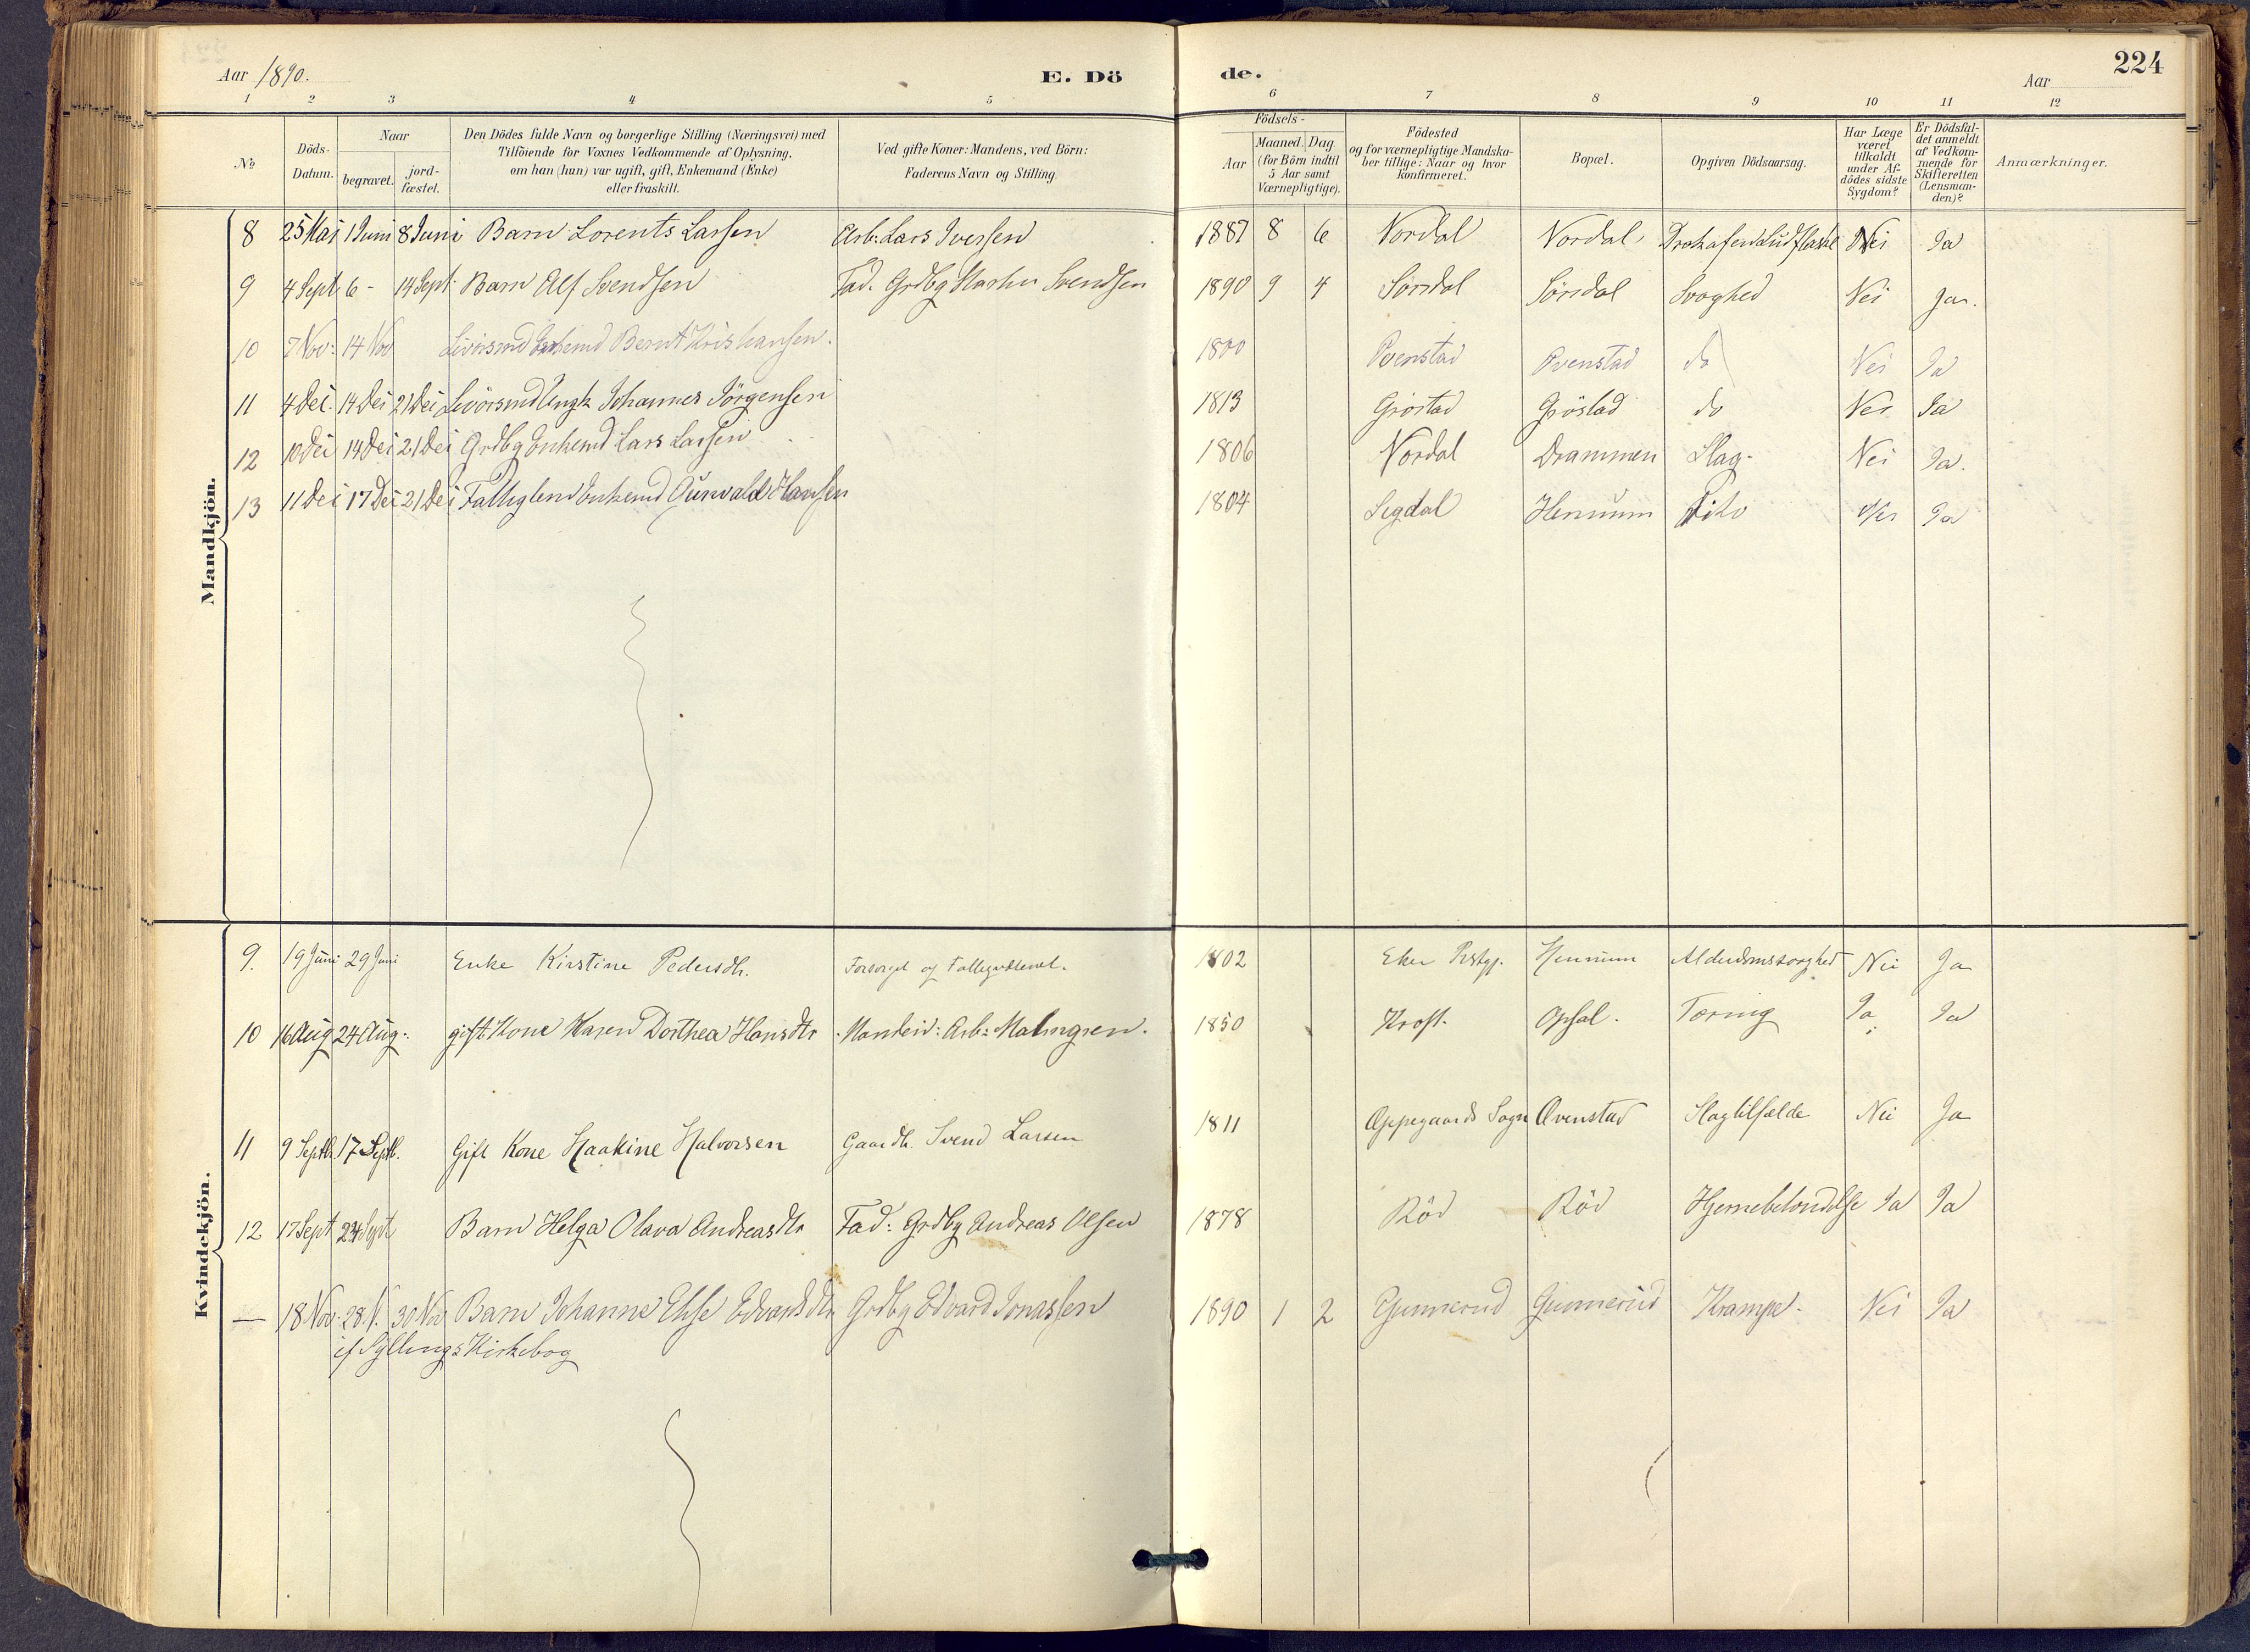 Aar 1890.
E. Dö
de.
Aar
224
1 2 3 4 5 6 7 8 9 10 11 12
No
Döds-Datum.
Naar
begravet. jord-fæstet.
Den Dödes fulde Navn og borgerlige Stilling (Næringsvei) med
Tilföiende for Voxnes Vedkommende af Oplysning,
om han (hun) var ugift, gift, Enkemand (Enke)
eller fraskilt.
Ved gifte Koner: Mandens, ved Börn:
Faderens Navn og Stilling.
Födsels-
Aar
Maaned. Dag
(for Börn indtil
5 Aar samt
Værnepligtige).
Födested
og for værnepligtige Mandska-
ber tillige: Naar og hvor
konfirmeret.
Bopæl.
Opgiven Dödsaarsag.
Har Læge
været
tilkaldt
under Af-
dödes sidste
Sygdom?
Er Dödsfal-
det anmeldt
af Vedkom-
mende for
Skifteretten
(Lensman-
den)?
Anmærkninger.
Mandkjön.
8 25 Mai 1 Juni 8 Juni Barn Lorents Larsen Arb: Lars Iversen 1887 8 6 Nordal Nordal Nei Ja
9 4 Sept 6 - 14 Sept Barn Alf Svendsen Fad. Grdbg Svendsen 1890 9 4 Sörsdal Sörsdal Svaghed Nei Ja.
10 7 Nov: 14 Nov Enkemd Bernt Kristiansen. Ovenstad Ovenstad do Nei Ja
11 4 Dei. 14 Dei 21 Dei Ungk Johannes Jörgensen 1813 Gröstad Gröstad do Nei Ja
12 10 Dei 14 Dei 21 Dei Grdbg Enkemd Lars Larsen 1806 Nordal Drammen Slag. Nei Ja.
13 11 Dei 17 Dei 21 Dei Fattiglem Enkemd Gunvald Hansen 1804 Sigdal Hennum Nei Ja
Kvindekjön.
9. 19 Juni 29 Juni Enke Kirstine Pedersdtr. Forsörget af Fattigvæsenet. 1802 Eker Prstgj. Hennum Alderdomssvaghed Nei Ja
10 16 Aug 24 Aug: gift Kone Karen Dorthea Hansdtr Arb: Malmgren. 1850 Kroft. Opsal. Tæring Ja Ja
11 9 Septb. 17 Septb. Gift Kone Haakine Halvorsen Gaardb. Svend Larsen 1811 Oppegaards Sogn Ovenstad Slagtilfælde Nei Ja
12 17 Sept 24 Sept Barn Helga Olava Andreasdtr Fad: Grdbg Andreas Olsen 1878 Röd Röd Hjernebetændelse Ja Ja
— 18 Nov. 28 N. 30 Nov Barn Johanne Elise Edvardsdtr Grdbg Edvard Jonassen 1890 1 2 Gunnerud Gunnerud Krampe. Nei Ja
cf Syllings Kirkebog